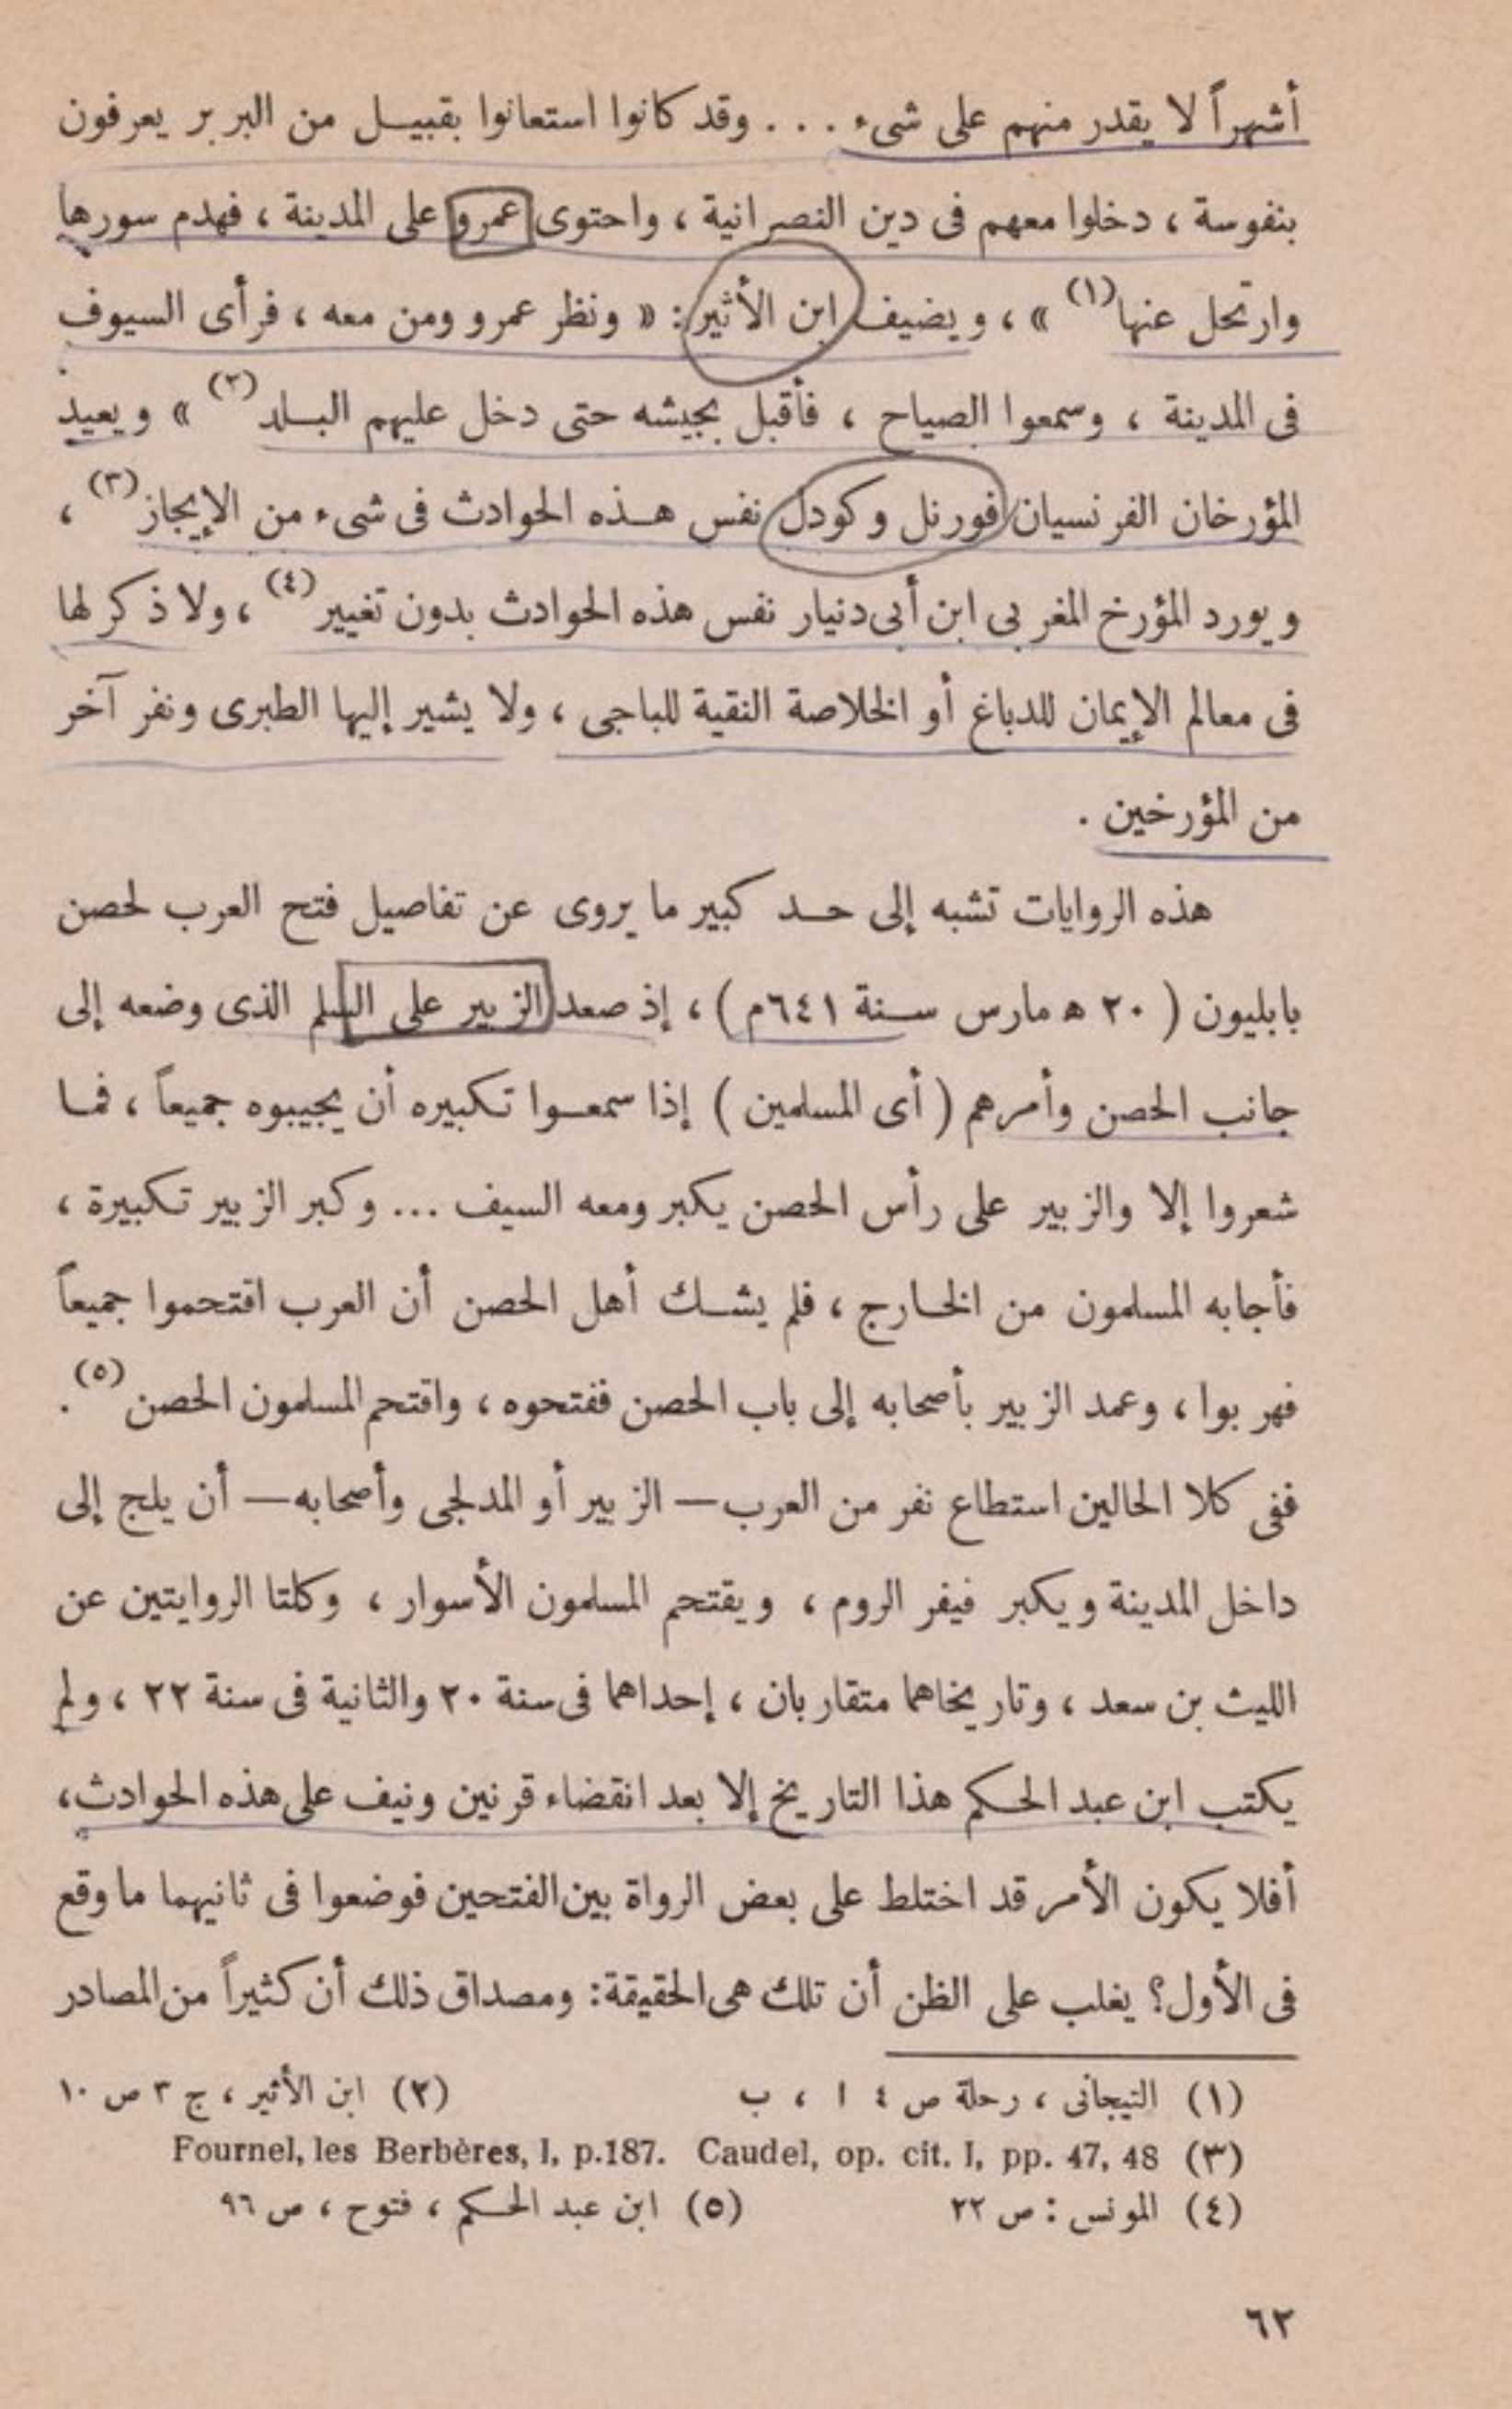 أشهراً لا يقدر منهم على شىء ... وقد كانوا استعانوا بقبيــل من البربر يعرفون
بنفوسة ، دخلوا معهم فى دين النصرانية ، واحتوى عمرو على المدينة ، فهدم سورها
وارتحل عنها(١) » ، ويضيف ابن الأثير : « ونظر عمرو ومن معه ، فرأى السيوف
فى المدينة ، وسمعوا الصياح ، فأقبل بجيشه حتى دخل عليهم البــلد(٢) » ويعيد
المؤرخان الفرنسيان فورنل وكودل نفس هــذه الحوادث فى شىء من الإيجاز(٣) ،
ويورد المؤرخ المغربى ابن أبى دنيار نفس هذه الحوادث بدون تغيير(٤) ، ولا ذكر لها
فى معالم الإيمان للدباغ أو الخلاصة النقية للباجى ، ولا يشير إليها الطبرى ونفر آخر
من المؤرخين .
هذه الروايات تشبه إلى حــد كبير ما يروى عن تفاصيل فتح العرب لحصن
بابليون ( ٢٠ ھ مارس ســنة ٦٤١م ) ، إذ صعد الزبير على السلم الذى وضعه إلى
جانب الحصن وأمرهم ( أى المسلمين ) إذا سمعــوا تكبيره أن يجيبوه جميعاً ، فمــا
شعروا إلا والزبير على رأس الحصن يكبر ومعه السيف ... وكبر الزبير تكبيرة ،
فأجابه المسلمون من الخــارج ، فلم يشــك أهل الحصن أن العرب اقتحموا جميعاً
فهربوا ، وعمد الزبير بأصحابه إلى باب الحصن ففتحوه ، واقتحم المسلمون الحصن(٥) .
ففى كلا الحالين استطاع نفر من العرب — الزبير أو المدلجى وأصحابه — أن يلج إلى
داخل المدينة ويكبر فيفر الروم ، ويقتحم المسلمون الأسوار ، وكلتا الروايتين عن
الليث بن سعد ، وتاريخاهما متقاربان ، إحداهما فى سنة ٢٠ والثانية فى سنة ٢٢ ، ولم
يكتب ابن عبد الحكم هذا التاريخ إلا بعد انقضاء قرنين ونيف على هذه الحوادث،
أفلا يكون الأمر قد اختلط على بعض الرواة بين الفتحين فوضعوا فى ثانيهما ما وقع
فى الأول؟ يغلب على الظن أن تلك هى الحقيقة: ومصداق ذلك أن كثيراً من المصادر
(١) التيجانى ، رحلة ص ٤ ا ، ب (٢) ابن الأثير ، ج ٣ ص ١٠
(٣) Fournel, les Berbères, I, p.187. Caudel, op. cit. I, pp. 47, 48
(٤) المونس : ص ٢٢ (٥) ابن عبد الحكم ، فتوح ، ص ٩٦
٦٢